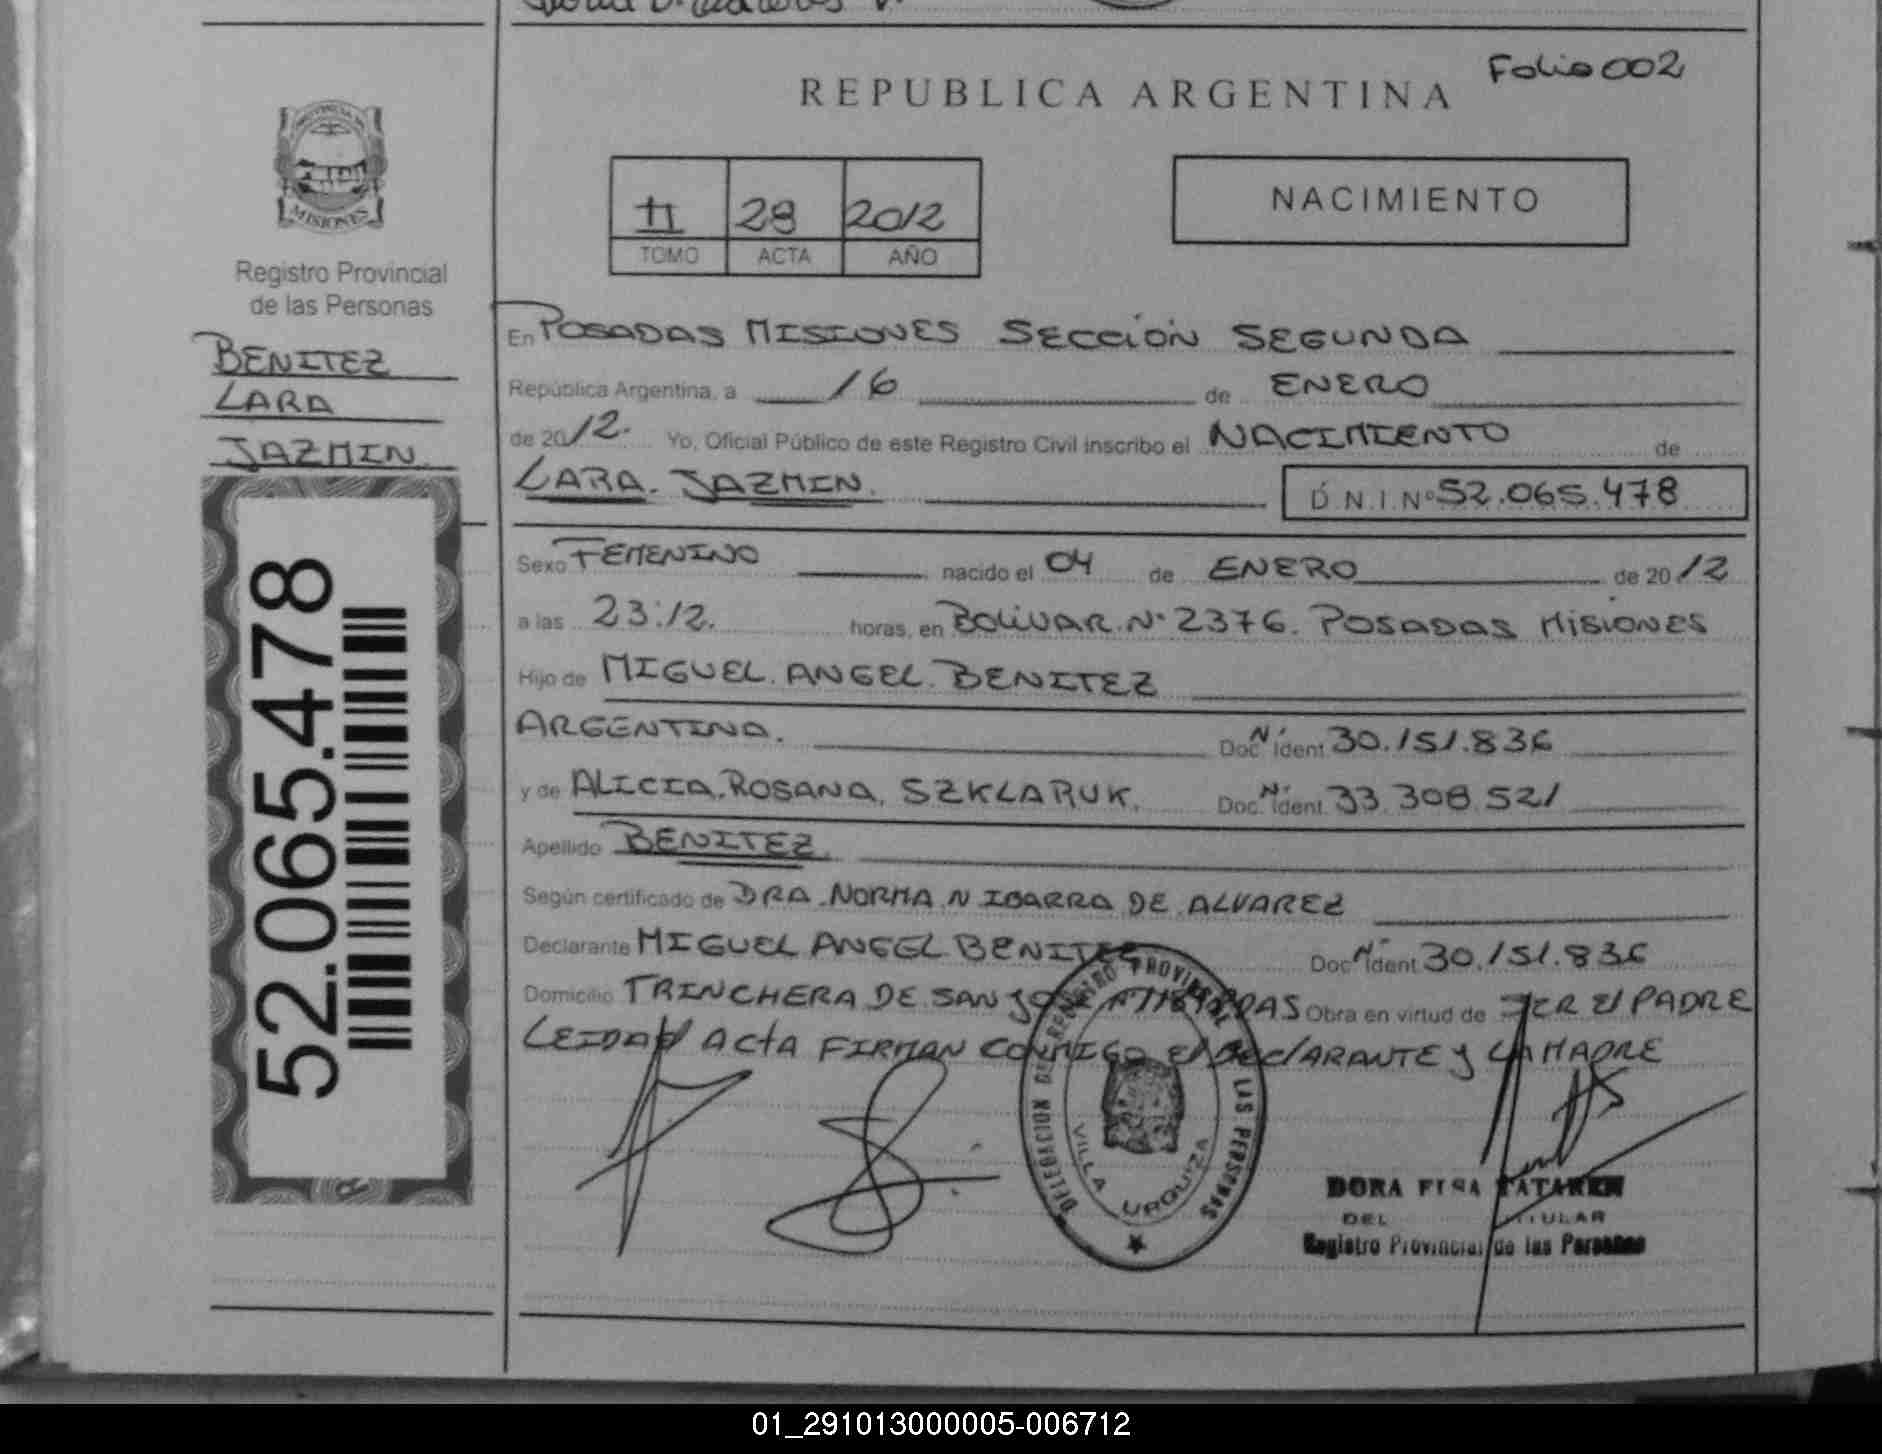 Folio 002
REPUBLICA ARGENTINA
PROVINCIA DE
MISIONES
Registro Provincial
de las Personas
BENITEZ
LARA
JAZMIN
52.065.478
II 28 2012
TOMO ACTA AÑO
NACIMIENTO
En POSADAS MISIONES SECCIÓN SEGUNDA
República Argentina, a 16 de ENERO
de 2012. Yo, Oficial Público de este Registro Civil inscribo el NACIMIENTO de
LARA. JAZMIN. D.N.I.Nº 52.065.478
Sexo FEMENINO nacido el 04 de ENERO de 2012
a las 23:12. horas, en BOLIVAR Nº 2376. POSADAS MISIONES
Hijo de MIGUEL. ANGEL. BENITEZ
ARGENTINO. Doc. Nº Ident 30.151.836
y de ALICIA. ROSANA. SZKLARUK. Doc. Nº Ident. 33.308.521
Apellido BENITEZ.
Según certificado de DRA. NORMA N IBARRA DE ALVAREZ
Declarante MIGUEL ANGEL BENITEZ Doc Nº Ident 30.151.836
Domicilio TRINCHERA DE SAN JOSE Obra en virtud de SER El PADRE
LEIDA El ACTA FIRMAN CONMIGO El DEClARANTE y LA MADRE
DELEGACION DE REGISTRO PROVINCIAL DE LAS PERSONAS
VILLA URQUIZA
DORA
DEL TITULAR
Registro Provincial de las Personas
01_291013000005-006712